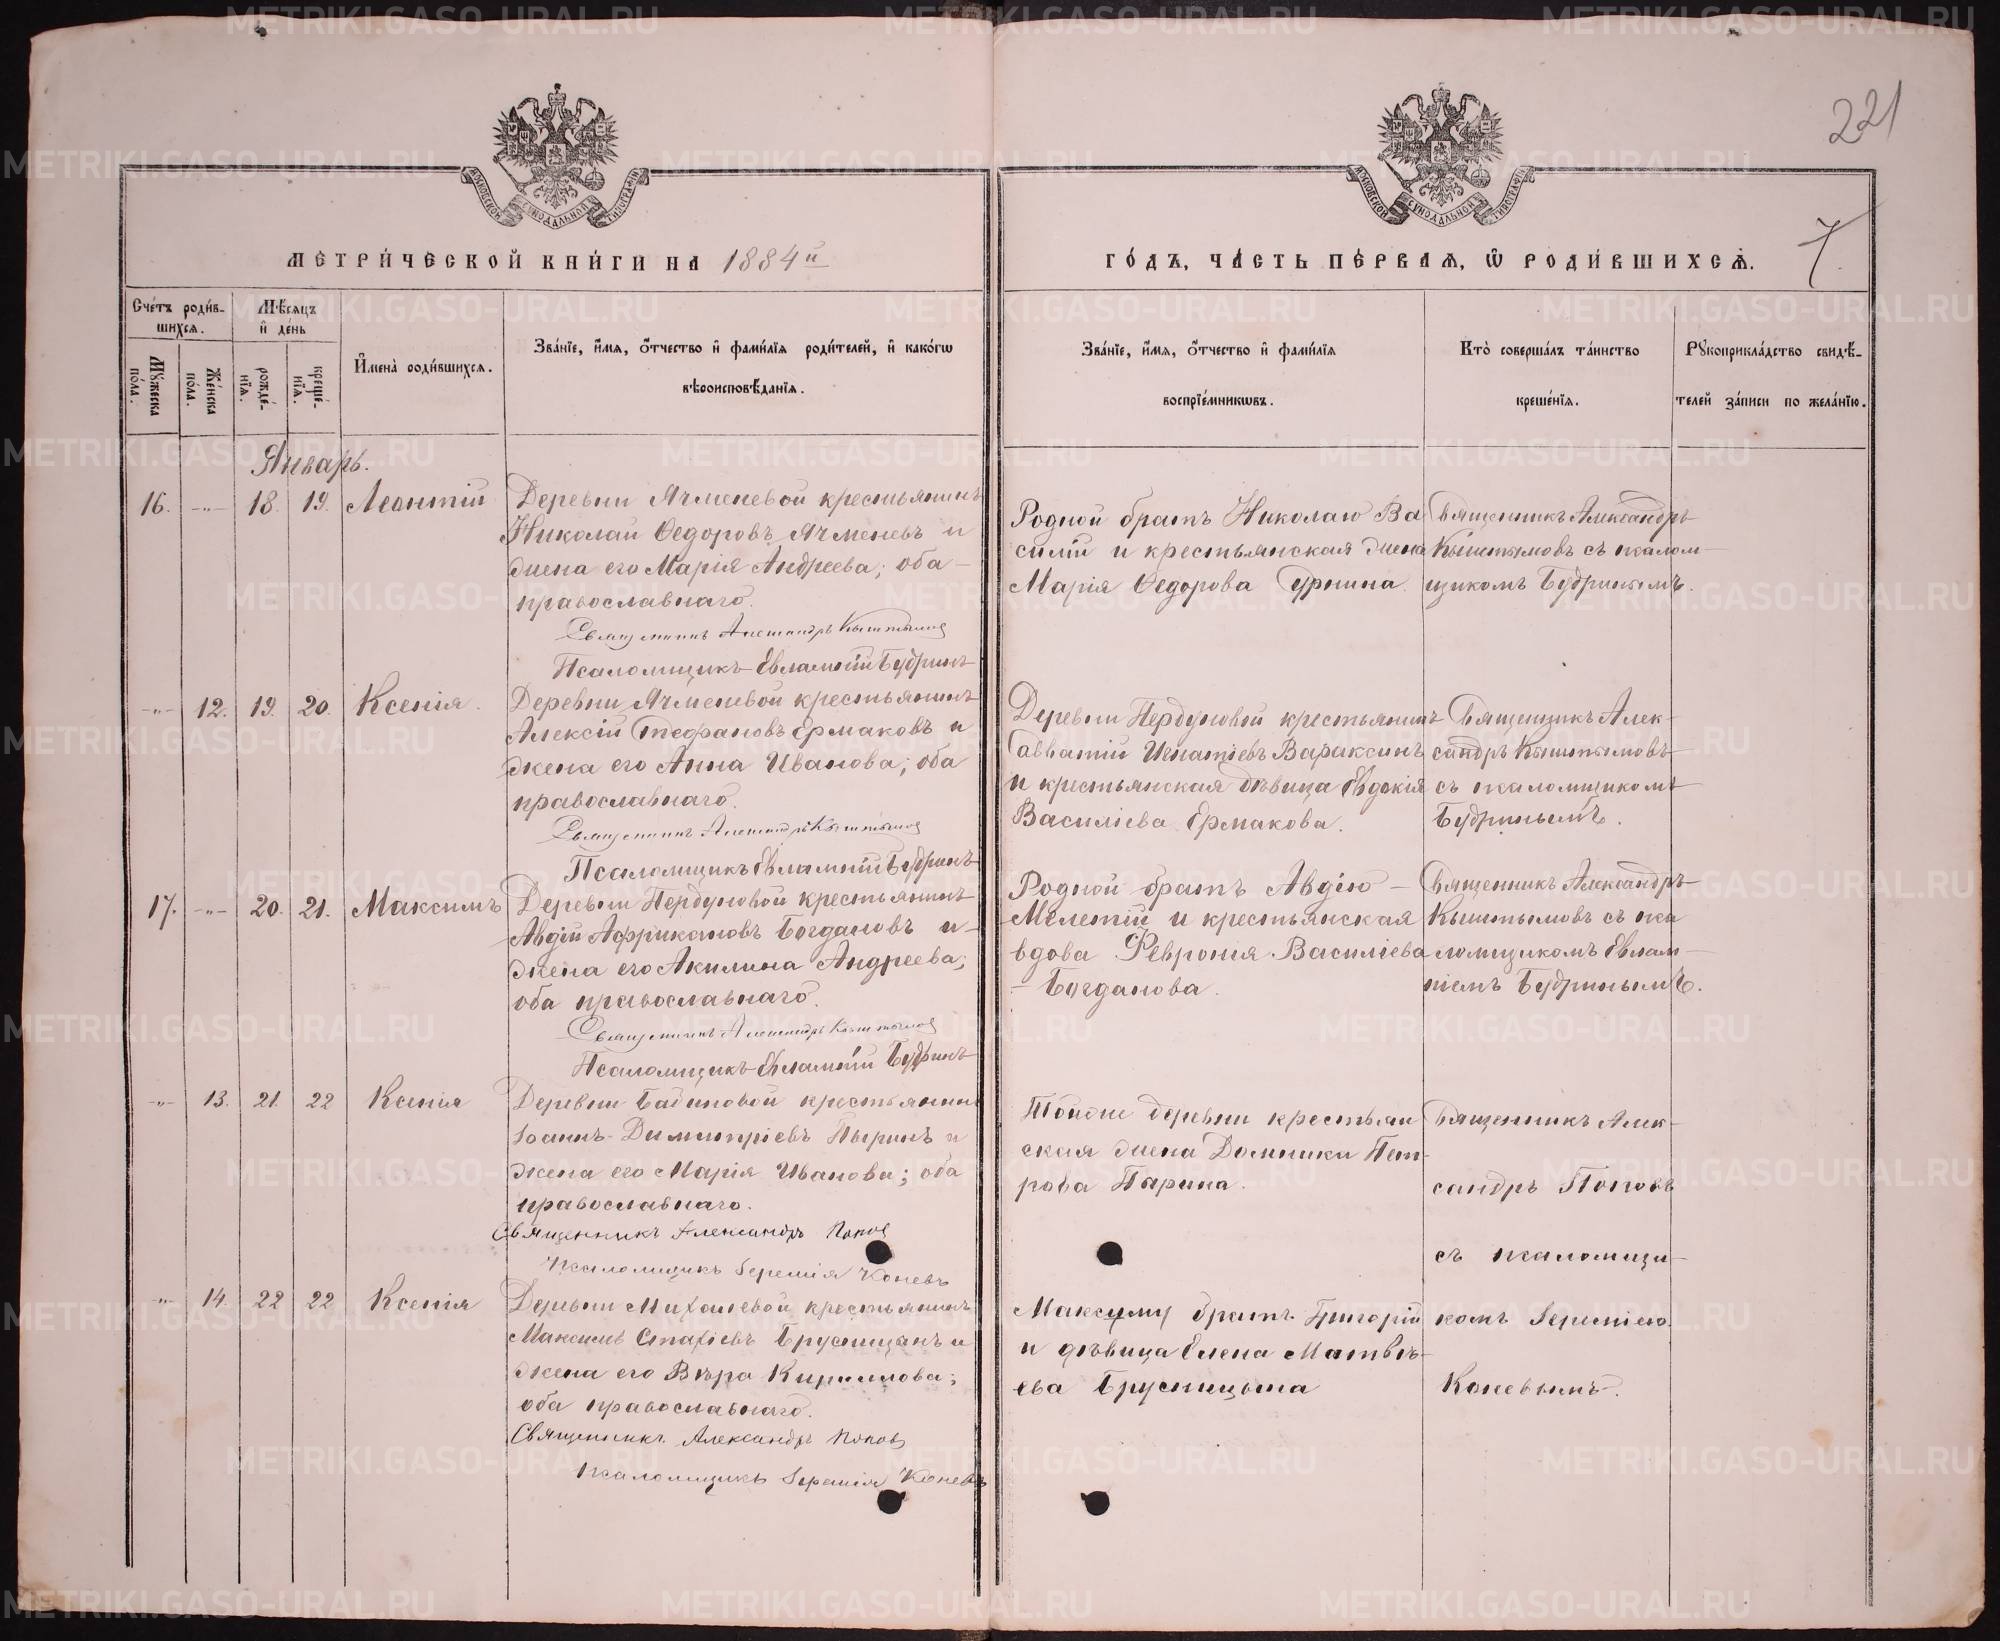 221
МОСКОВСКОЙ СѴНОДАЛЬНОЙ ТИПОГРАФІИ
МОСКОВСКОЙ СѴНОДАЛЬНОЙ ТИПОГРАФІИ
МЕТРИ́ЧЕСКОЙ КНИ́ГИ НА 1884й
ГО́ДЪ, ЧА́СТЬ ПЕ́РВАѦ, Ѡ РОДИ́ВШИХСѦ.
7.
Сче́тъ роди́в-
шихсѧ.
Мꙋ́жеска по́ла.
Же́нска по́ла.
Мѣ́сѧцъ
и҆ де́нь
рожде́-
нїѧ.
креще́-
нїѧ.
И҆мена̀ роди́вшихсѧ.
Зва́нїе, и҆́мѧ, ѻ҆́тчество и҆ фами́лїѧ роди́телей, и҆ како́гѡ
вѣроисповѣ́данїѧ.
Зва́нїе, и҆́мѧ, ѻ҆́тчество и҆ фами́лїѧ
воспрїе́мникѡвъ.
Кто̀ соверша́лъ та́инство
креще́нїѧ.
Рꙋкоприкла́дство свидѣ́-
телей за́писи по жела́нїю.
Январь.
16. -„- 18. 19. Леонтій
Деревни Ячменевой крестьянинъ
Николай Ѳедоровъ Ячменевъ и
жена его Марія Андреева; оба
православнаго.
Священникъ Александръ Кыштымов
Псаломщикъ Евлампій Будринъ
Родной братъ Николаю Ва
силій и крестьянская жена
Марія Ѳедорова
Священникъ Александръ
Кыштымовъ съ псалом-
щикомъ Будринымъ.
-„- 12. 19. 20. Ксенія.
Деревни Ячменевой крестьянинъ
Алексій Стефановъ Ермаковъ и
жена его Анна Иванова; оба
православнаго.
Священникъ Александръ Кыштымов
Псаломщикъ Евлампій Будринъ
Деревни крестьянинъ
Савватій Игнатіевъ Вараксинъ
и крестьянская дѣвица Евдокія
Василіева Ермакова.
Священникъ Алек-
сандръ Кыштымовъ
съ псаломщикомъ
Будринымъ.
17. -„- 20. 21. Максимъ
Деревни крестьянинъ
Авдій Африкановъ Богдановъ и
жена его Акилина Андреева;
оба православнаго.
Священникъ Александръ Кыштымов
Псаломщикъ Евлампій Будринъ
Родной братъ Авдію -
Мелетій и крестьянская
вдова Февронія Василіева
- Богданова.
Священникъ Александръ
Кыштымовъ съ пса
ломщикомъ Евлам-
піемъ Будринымъ.
-„- 13. 21. 22 Ксенія
Деревни крестьянинъ
Іоаннъ Димитріевъ и
жена его Марія Иванова; оба
православнаго.
Священникъ Александръ Попов
Псаломщикъ Іеремія Коневъ
Тойже деревни крестьян
ская жена Домника Пет-
рова
Священникъ Алек-
сандръ Поповъ
съ псаломщи-
-„- 14. 22 22 Ксенія
Деревни Михалевой крестьянинъ
Максимъ Стахіевъ Брусницынъ и
жена его Вѣра Кириллова;
оба православнаго.
Священникъ Александръ Попов
псаломщикъ Іеремія Коневъ
Максиму братъ Григорій
и дѣвица Елена Матвѣ-
ева Брусницына
комъ Іереміею
Коневымъ.
METRIKI.GASO-URAL.RU